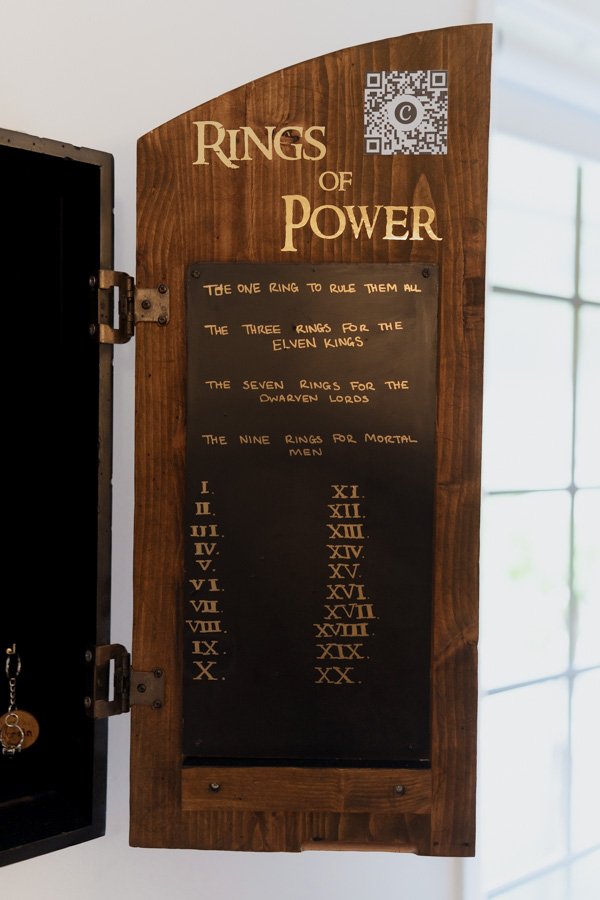 RINGS
OF
POWER
C
THE ONE RING TO RULE THEM ALL
THE THREE RINGS FOR THE
ELVEN KINGS
THE SEVEN RINGS FOR THE
DWARVEN LORDS
THE NINE RINGS FOR MORTAL
MEN
I.
II.
III.
IV.
V.
VI.
VII.
VIII.
IX.
X.
XI.
XII.
XIII.
XIV.
XV.
XVI.
XVII.
XVIII.
XIX.
XX.